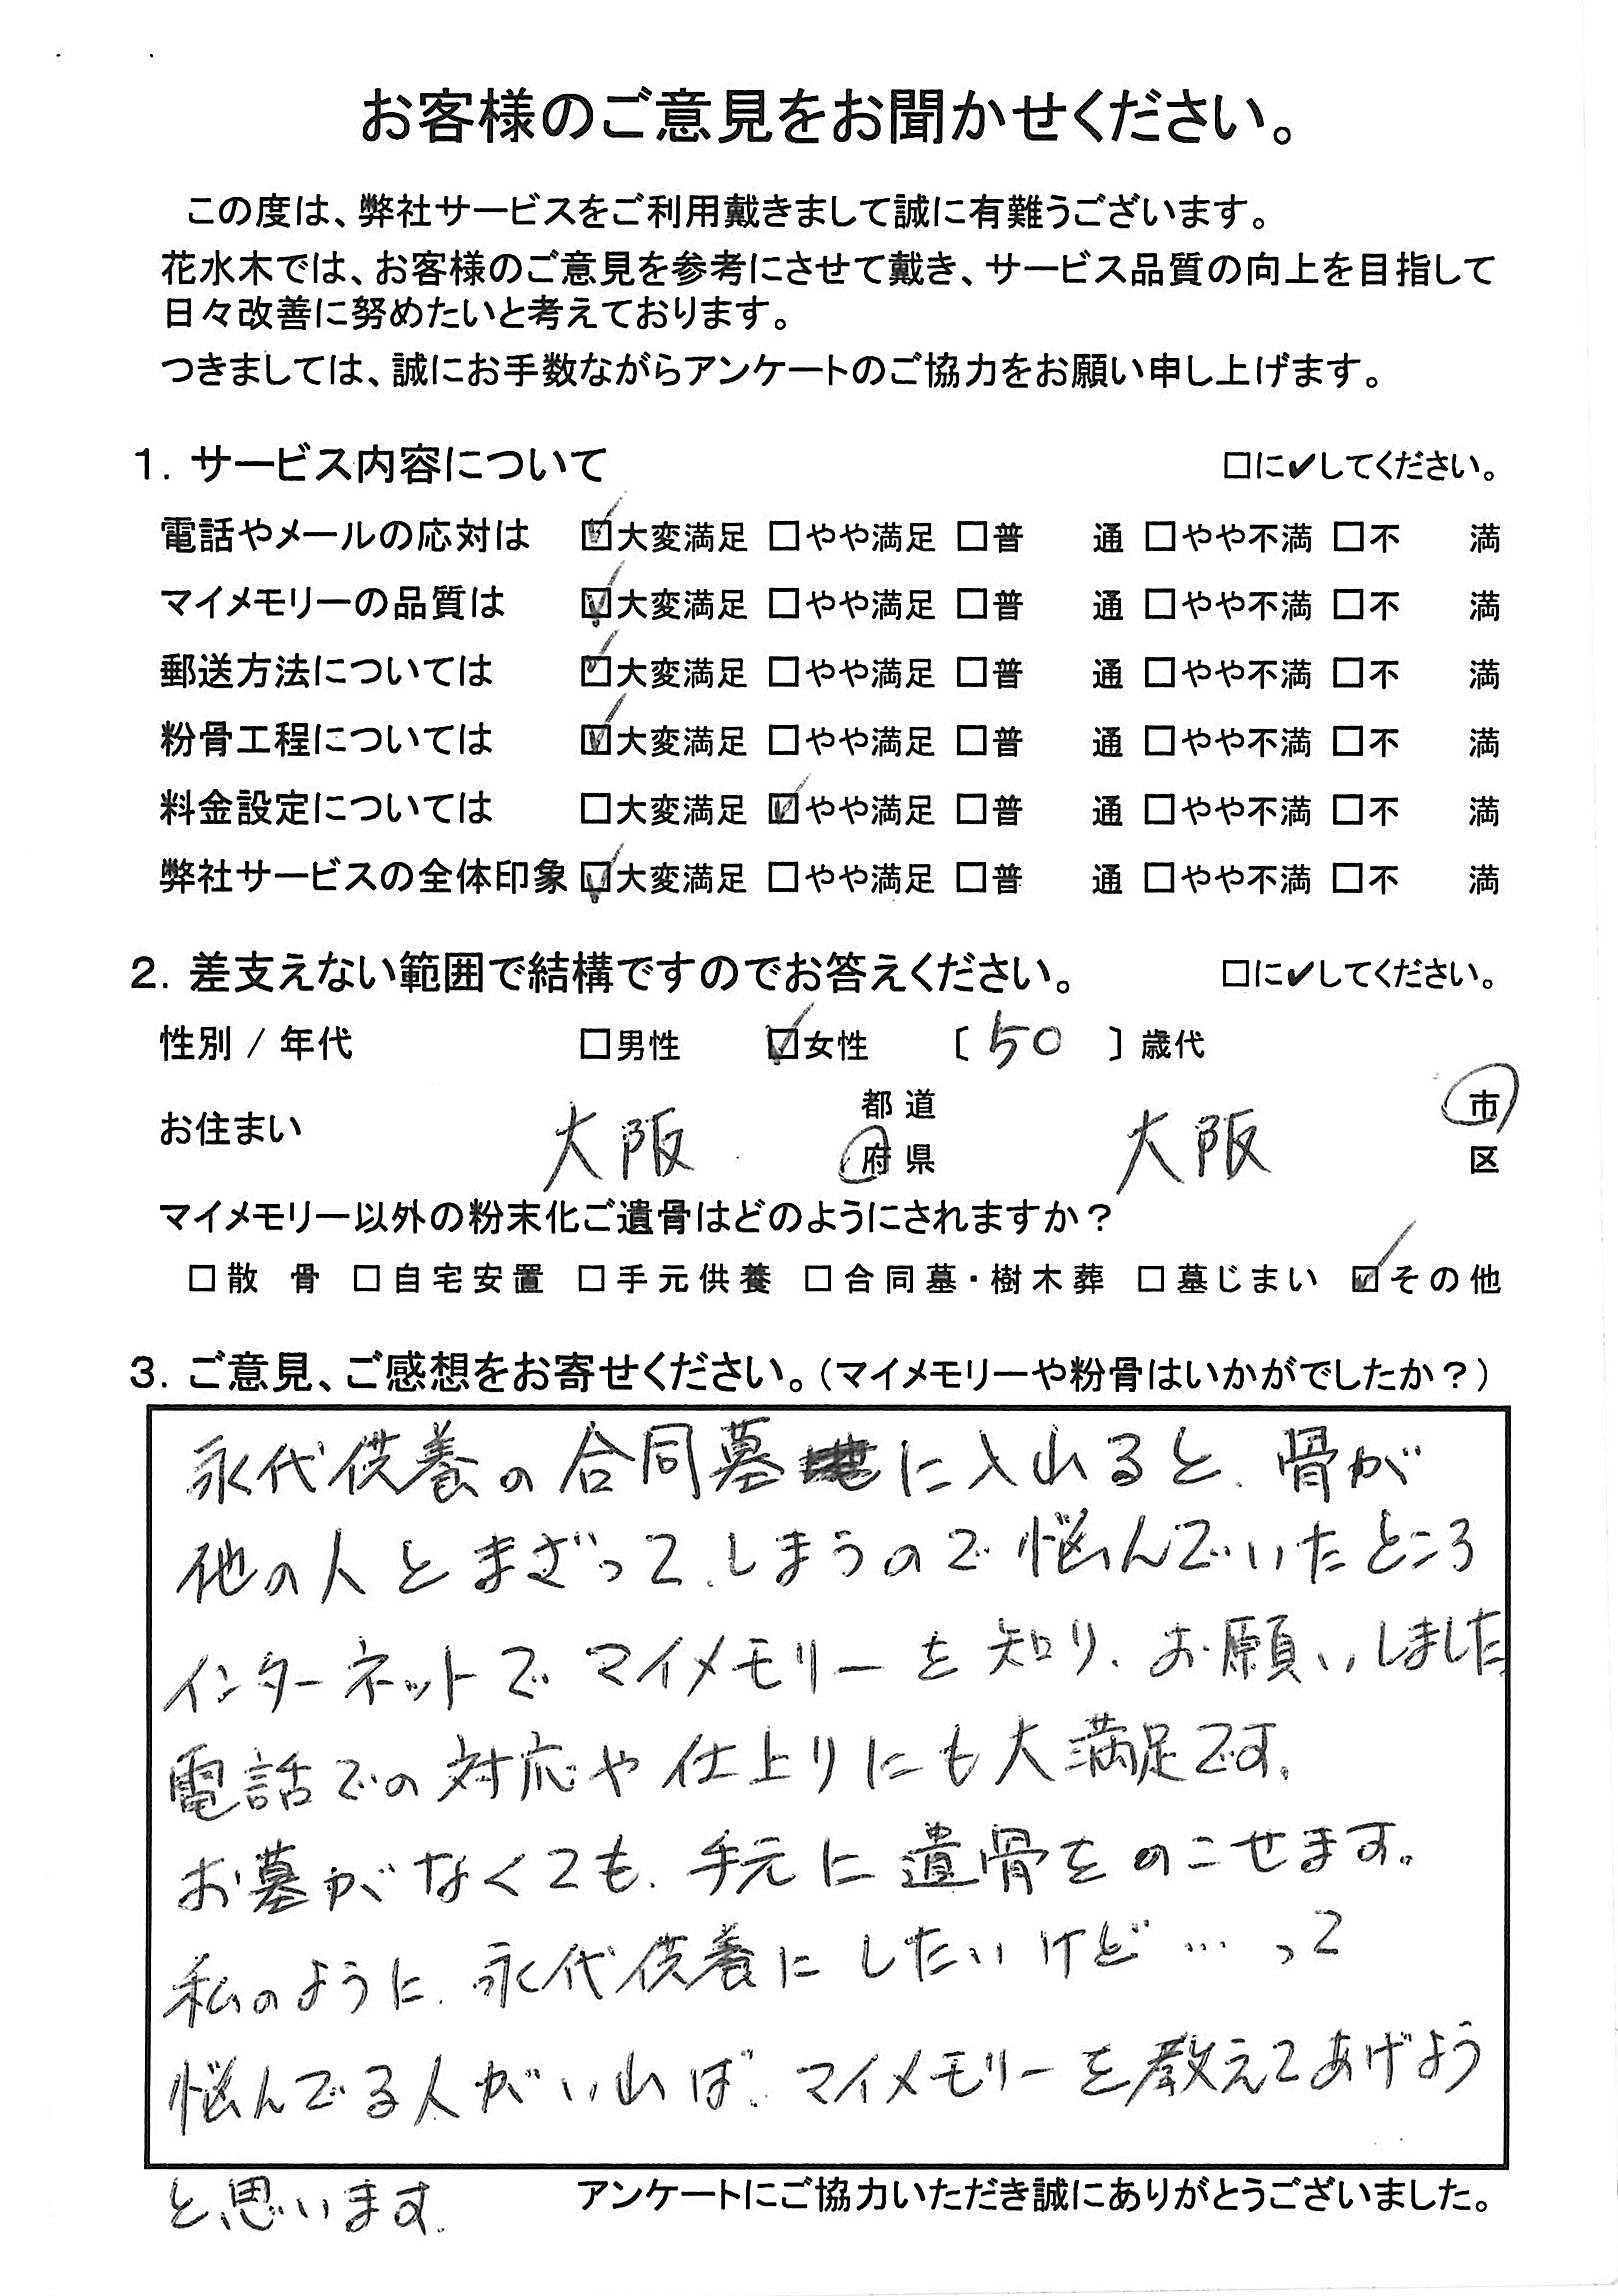 お客様のご意見をお聞かせください。
この度は、弊社サービスをご利用戴きまして誠に有難うございます。
花水木では、お客様のご意見を参考にさせて戴き、サービス品質の向上を目指して
日々改善に努めたいと考えております。
つきましては、誠にお手数ながらアンケートのご協力をお願い申し上げます。
1. サービス内容について □に✔してください。
電話やメールの応対は ☑大変満足 □やや満足 □普 通 □やや不満 □不 満
マイメモリーの品質は ☑大変満足 □やや満足 □普 通 □やや不満 □不 満
郵送方法については ☑大変満足 □やや満足 □普 通 □やや不満 □不 満
粉骨工程については ☑大変満足 □やや満足 □普 通 □やや不満 □不 満
料金設定については □大変満足 ☑やや満足 □普 通 □やや不満 □不 満
弊社サービスの全体印象 ☑大変満足 □やや満足 □普 通 □やや不満 □不 満
2. 差支えない範囲で結構ですのでお答えください。 □に✔してください。
性別 / 年代 □男性 ☑女性 〔 50 〕歳代
都道 市
お住まい 大阪 大阪
府県 区
マイメモリー以外の粉末化ご遺骨はどのようにされますか?
□散 骨 □自宅安置 □手元供養 □合同墓・樹木葬 □墓じまい ☑その他
3. ご意見、ご感想をお寄せください。(マイメモリーや粉骨はいかがでしたか?)
永代供養の合同墓に入れると、骨が
他の人とまざって、しまうので悩んでいたところ
インターネットでマイメモリーを知り、お願いしました
電話での対応や仕上りにも大満足です。
お墓がなくても、手元に遺骨をのこせます。
私のように、永代供養にしたいけど…って
悩んでる人がいれば、マイメモリーを教えてあげよう
と思います。
アンケートにご協力いただき誠にありがとうございました。